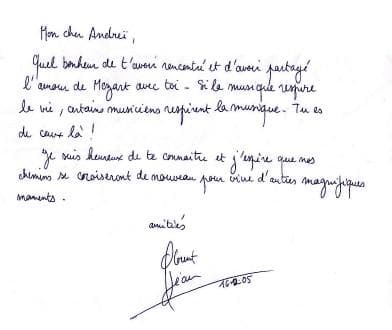 Mon cher Andreï,
Quel bonheur de t'avoir rencontré et d'avoir partagé
l'amour de Mozart avec toi - Si la musique respire
la vie, certains musiciens respirent la musique. Tu es
de ceux là !
Je suis heureux de te connaitre et j'espère que nos
chemins se croiseront de nouveau pour vivre d'autres magnifiques
moments.
amitiés
Jean
05